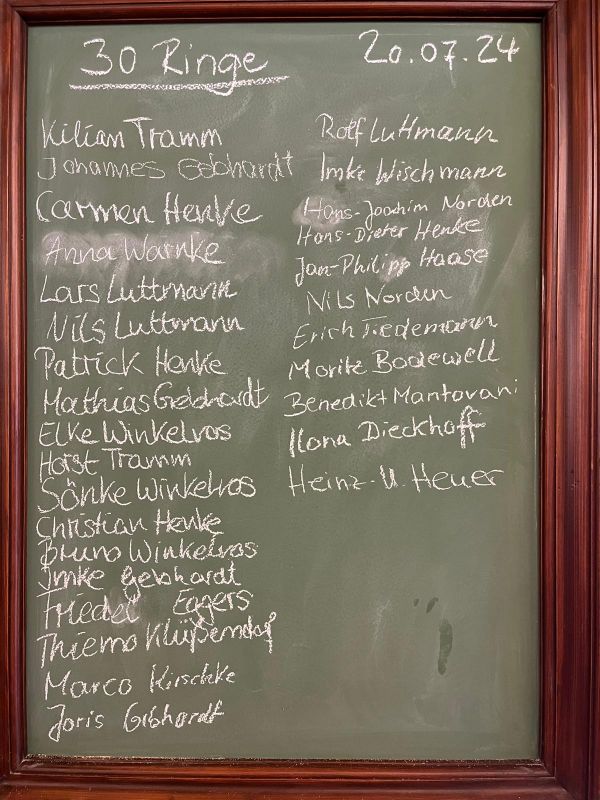 30 Ringe
20.07.24
Kilian Tramm
Johannes Gebhardt
Carmen Henke
Anna Warnke
Lars Luttmann
Nils Luttmann
Patrick Henke
Mathias Gebhardt
Elke Winkelvos
Horst Tramm
Sönke Winkelvos
Christian Henke
Bruno Winkelvos
Imke Gebhardt
Friedel Eggers
Thiemo Klüßendorf
Marco Kirschke
Joris Gebhardt
Rolf Luttmann
Imke Wischmann
Hans-Joachim Norden
Hans-Dieter Henke
Jan-Philipp Haase
Nils Norden
Erich Tiedemann
Moritz Bodewell
Benedikt Mantovani
Ilona Dieckhoff
Heinz-U. Heuer